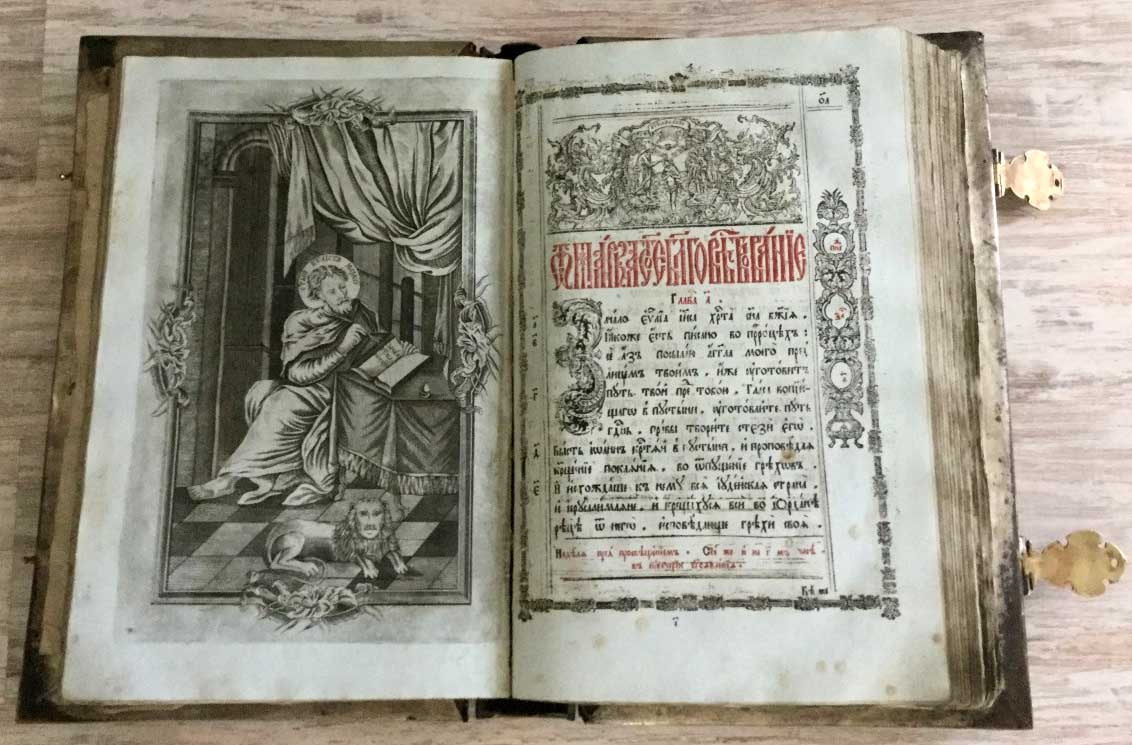 Ѿ ма́рка ст҃о́е бл҃говѣствова́нїе
Глава̀ а҃.
Зача́ло є҆ѵⷢ҇лїа і҆и҃са хрⷭ҇та̀ сн҃а бж҃їѧ.
Ꙗ҆́коже є҆́сть пи́сано во прⷪ҇ро́цѣхъ:
се а҆́зъ посыла́ю а҆́гг҃ла моего̀ пред̾
лице́мъ твои́мъ, и҆́же ᲂу҆гото́витъ
пу́ть тво́й пред̾ тобо́ю. Гла́съ вопїю́
щагѡ в̾ пусты́ни, ᲂу҆гото́вайте пу́ть
гдⷭ҇нь, пра́вы твори́те стєзѝ є҆гѡ̀.
Бы́сть і҆ѡа́ннъ крⷭ҇тѧ́й в̾ пусты́ни, и҆ проповѣ́даѧ
крⷳ҇щнїе покаѧ́нїѧ, во ѿпуще́нїе грѣхѡ́въ.
И҆ и҆схожда́ше къ нему̀ всѧ̀ і҆уде́йскаѧ страна̀,
и҆ і҆ерусали́млѧне, и҆ креща́хусѧ всѝ во і҆ѻрда́нѣ
рѣцѣ̀ ѿ негѡ̀, и҆сповѣ́дающе грѣхѝ своѧ̀.
Недѣлѧ пред̾ просвѣщенїемъ. Сїй же и на г҃ мъ часѣ
въ навечерїе